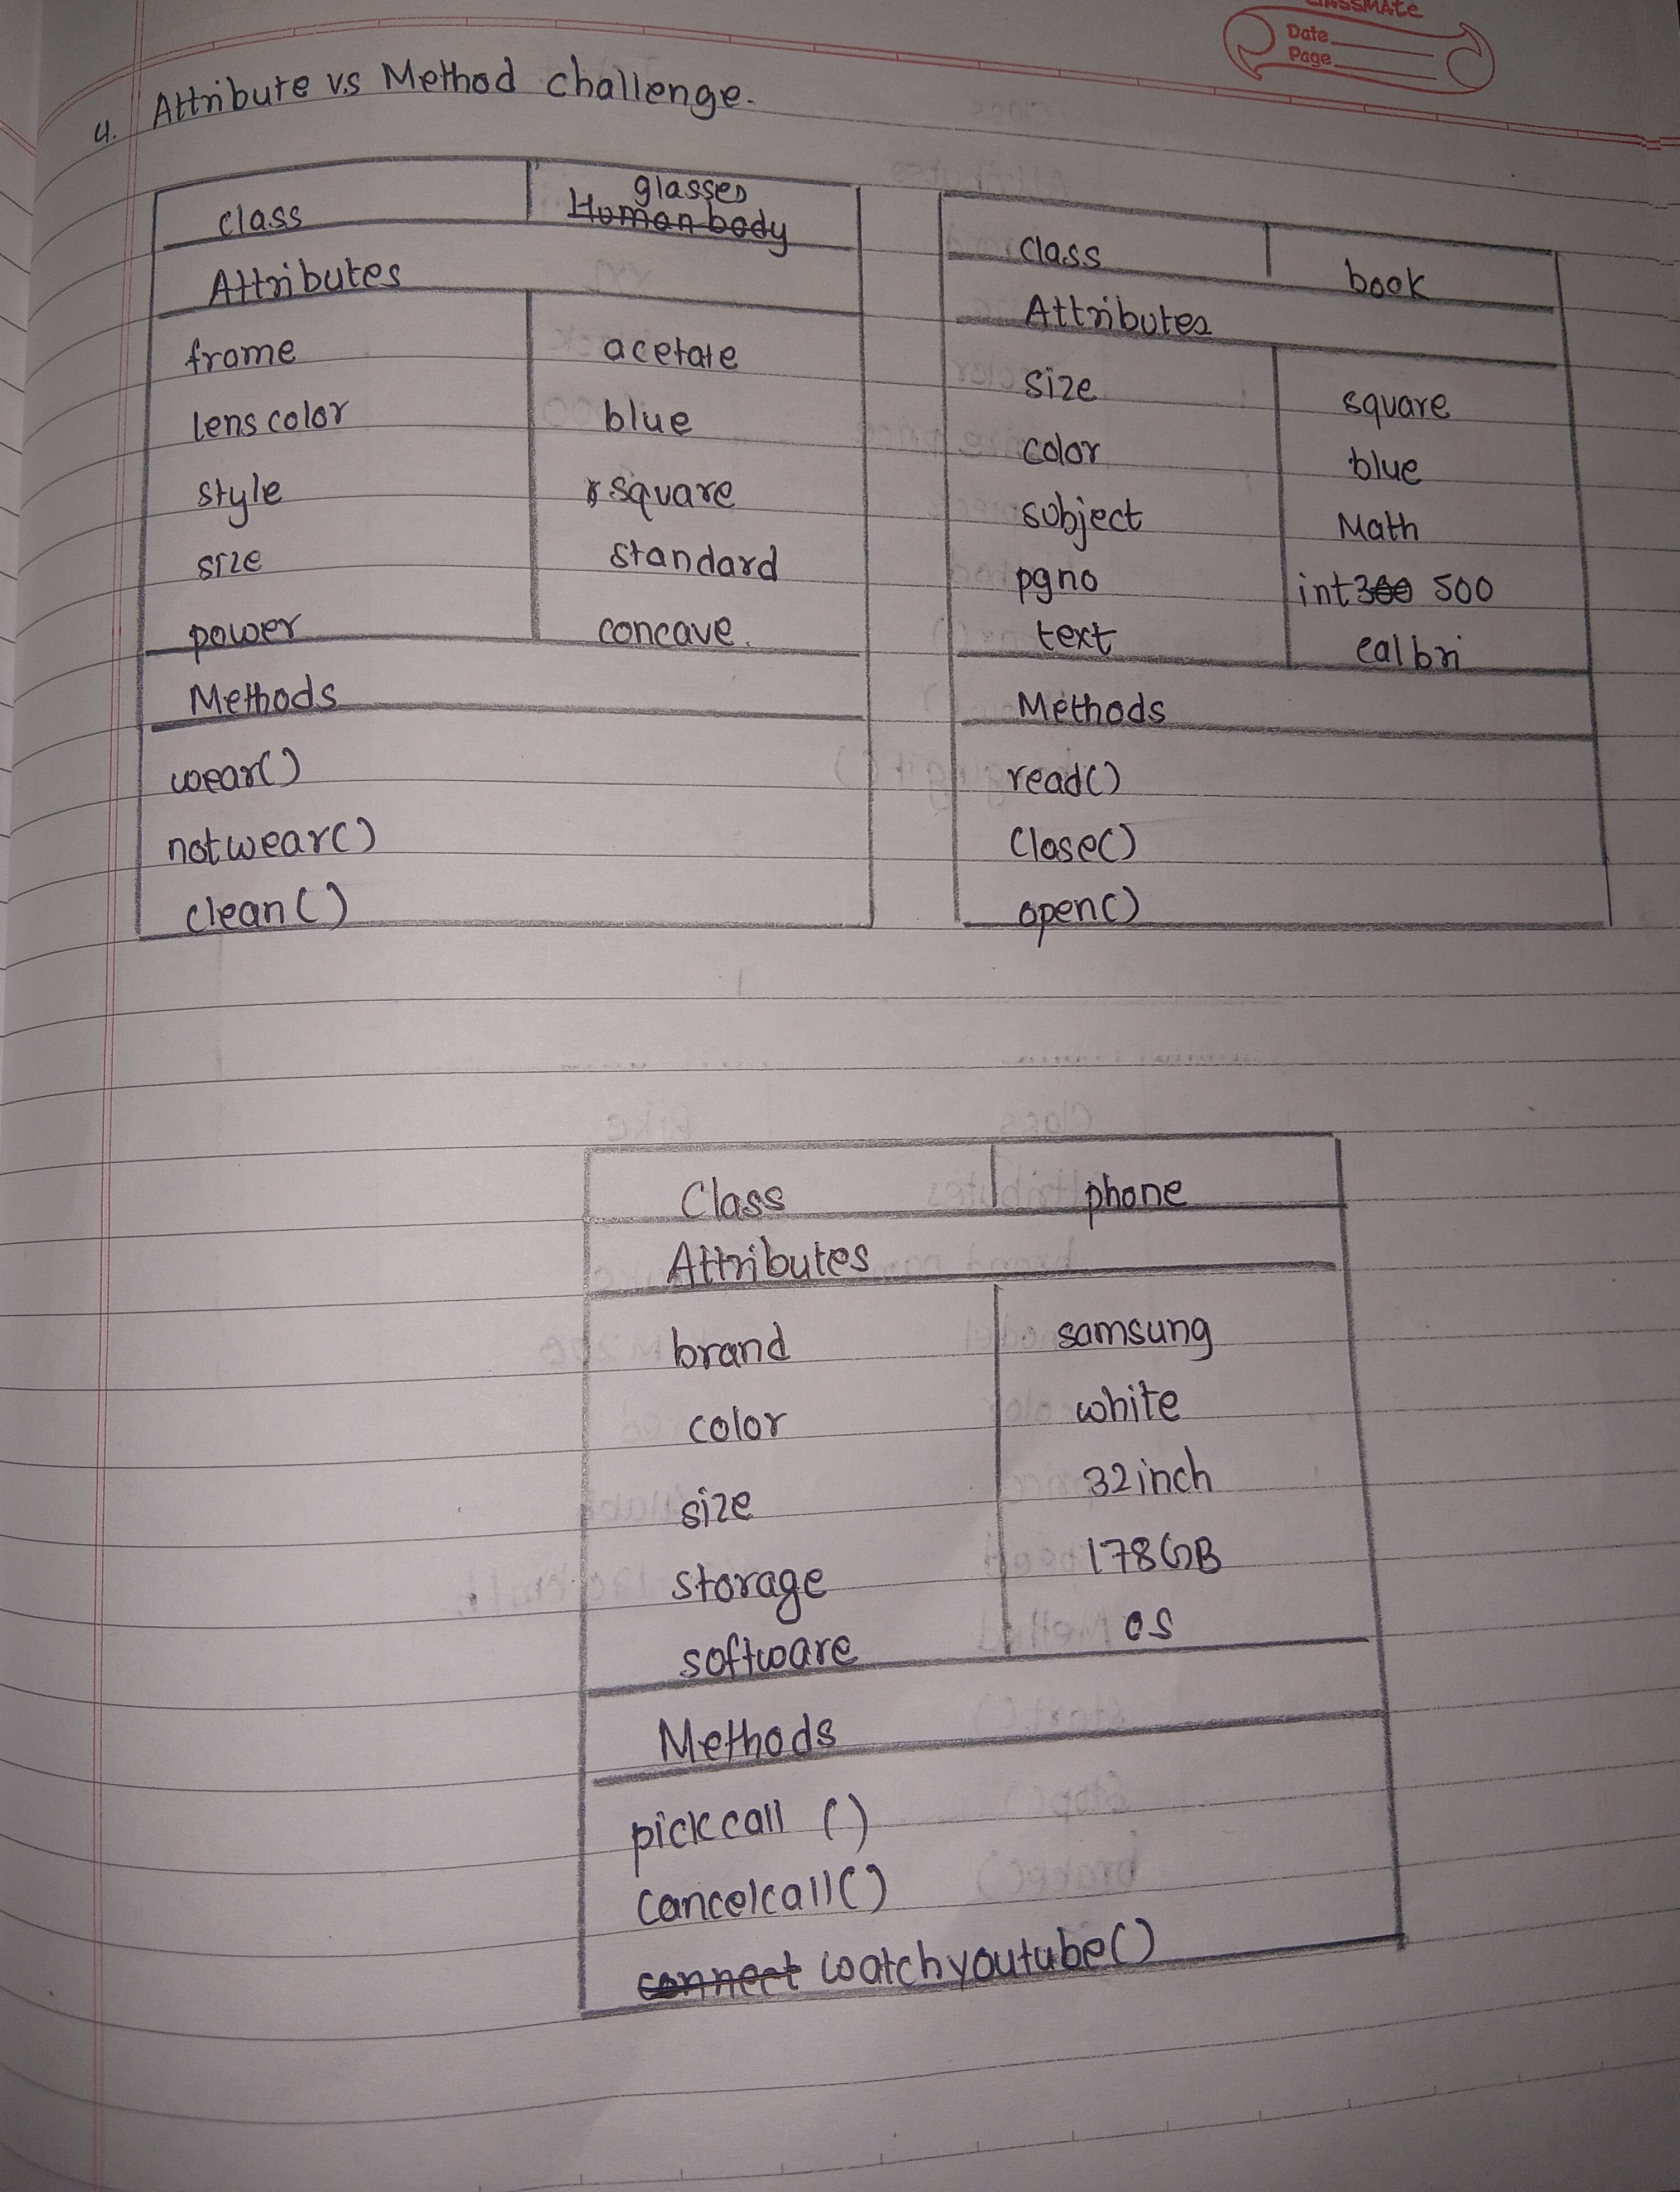 classmate
Date
Page
4. Attribute v.s Method challenge.
class glasses
Human body
Attributes
frame acetate
lens color blue
style square
size standard
power concave.
Methods
wear()
notwear()
clean()
Class book
Attributes
size square
color blue
subject Math
pgno int 300 500
text calbri
Methods
read()
Close()
open()
Class phone
Attributes
brand samsung
color white
size 32inch
storage 178GB
software os
Methods
pickcall ()
Cancelcall()
connect watchyoutube()